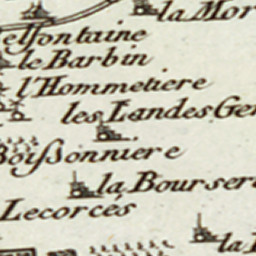 la Mor
elfontaine
le Barbin
l'Hommetiere
les Landes Ger
Boißonniere
la Bourser
Lecorcés
la